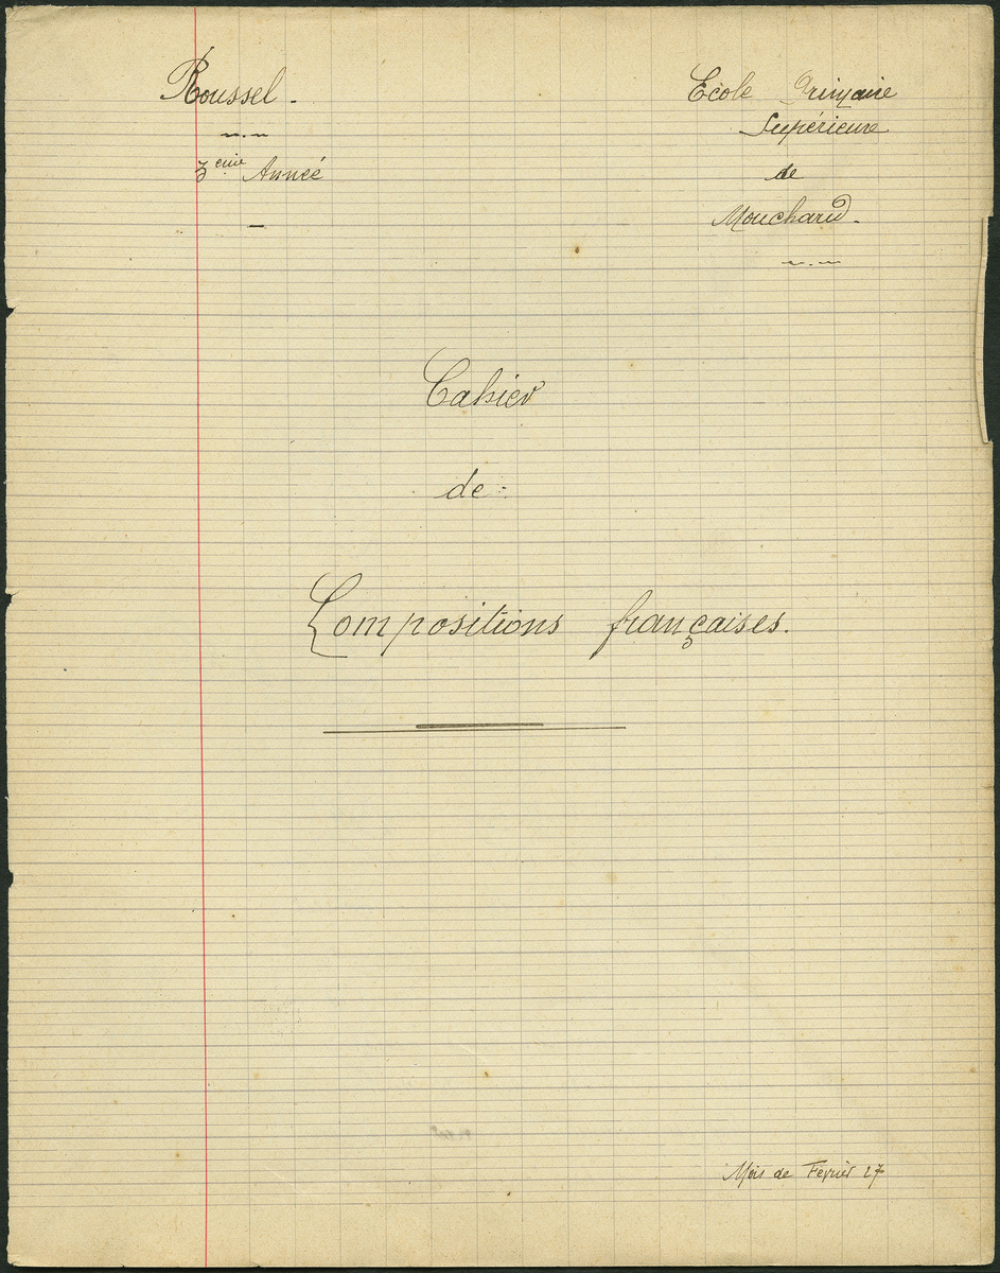 Roussel.
3eme Année
Ecole Primaire
Supérieure
de
Mouchard.
Cahier
de
Compositions françaises.
Mois de Février 27